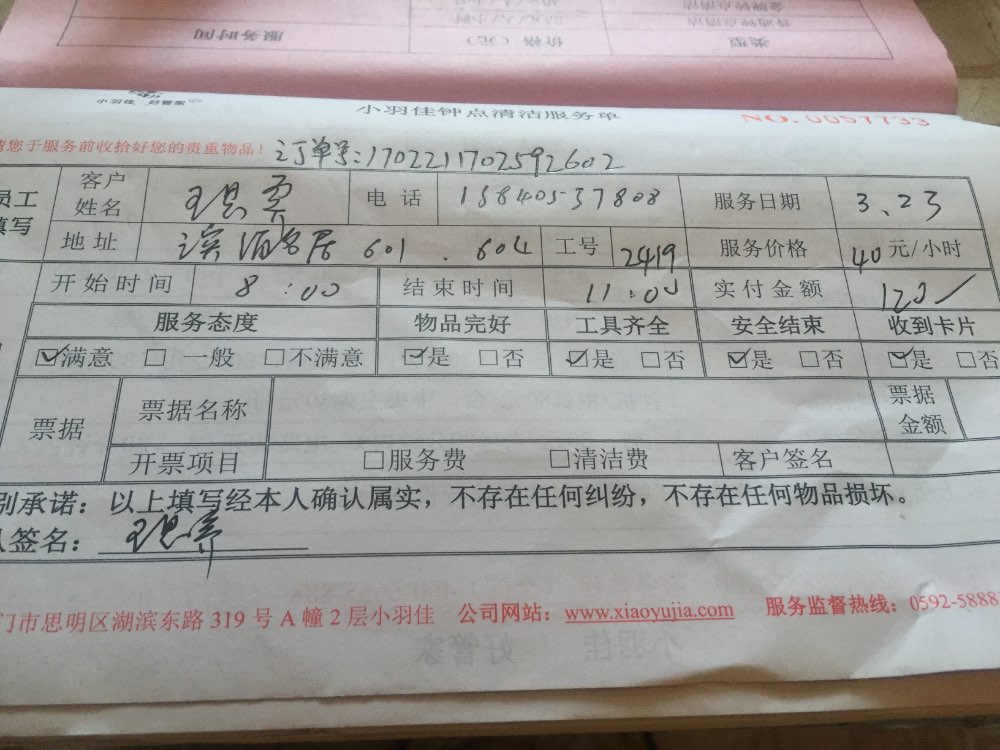 类型 价格（元） 服务时间
小羽佳 好管家
小羽佳钟点清洁服务单
NO. 0057733
请您于服务前收拾好您的贵重物品！ 订单号:1702211702592602
员工填写
客户姓名 电话 15840537808 服务日期 3.23
地址 601 . 604 工号 2419 服务价格 40元/小时
开始时间 8:00 结束时间 11:00 实付金额 120
服务态度 物品完好 工具齐全 安全结束 收到卡片
☑满意 □一般 □不满意 ☑是 □否 ☑是 □否 ☑是 □否 ☑是 □否
票据 票据名称 票据金额
开票项目 □服务费 □清洁费 客户签名
别承诺：以上填写经本人确认属实，不存在任何纠纷，不存在任何物品损坏。
签名：
门市思明区湖滨东路319号A幢2层小羽佳 公司网站：www.xiaoyujia.com 服务监督热线：0592-5888